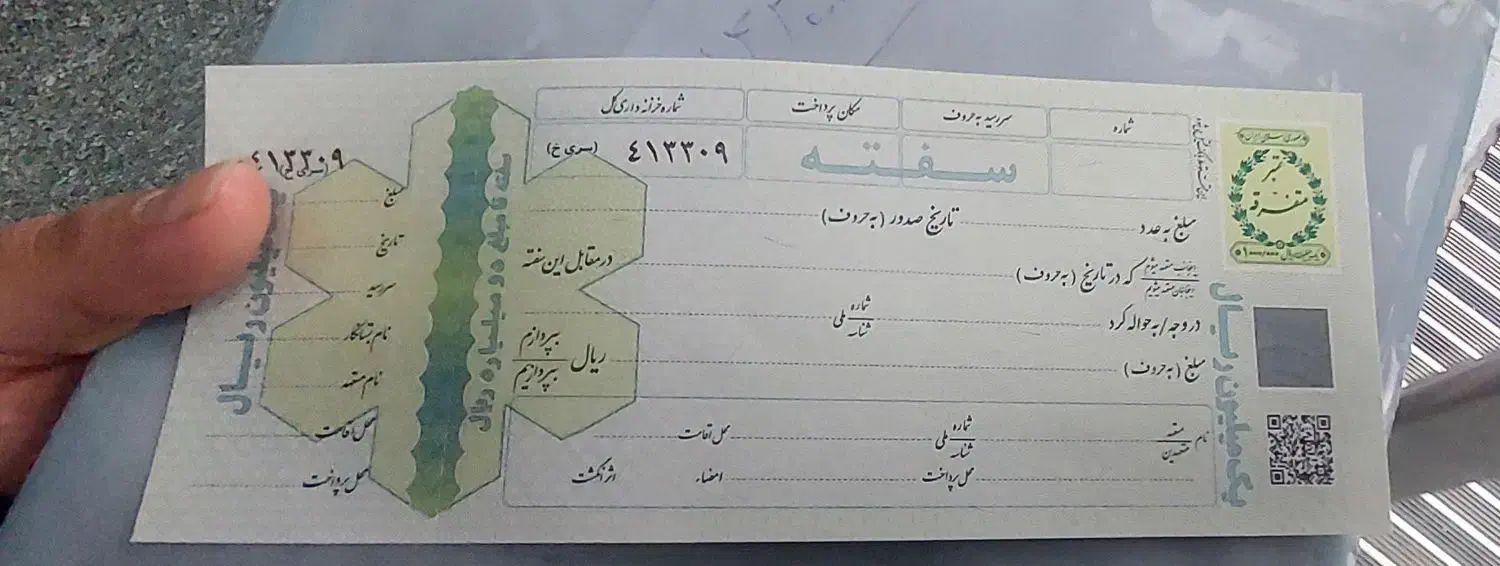 شماره
سررسید به حروف
مکان پرداخت
شماره خزانه داری کل
سفته
۴۱۳۳۰۹ (سری خ)
مبلغ به عدد
تاریخ صدور (به حروف)
اینجانب متعهد میشوم
اینجانبان متعهد میشویم
که در تاریخ (به حروف)
در مقابل این سفته
در وجه/به حواله کرد
شماره
شناسه
ملی
مبلغ (به حروف)
ریال
بپردازم
بپردازیم
نام
متعهد
متعهدین
شماره
شناسه
ملی
محل اقامت
محل پرداخت
امضاء
اثر انگشت
تمبر
متفرقه
یک میلیون ریال
سفته تا مبلغ دو میلیارد ریال
۴۱۳۳۰۹
(سری خ)
مبلغ
تاریخ
سررسید
نام بستانکار
نام متعهد
محل اقامت
محل پرداخت
میلیون ریال